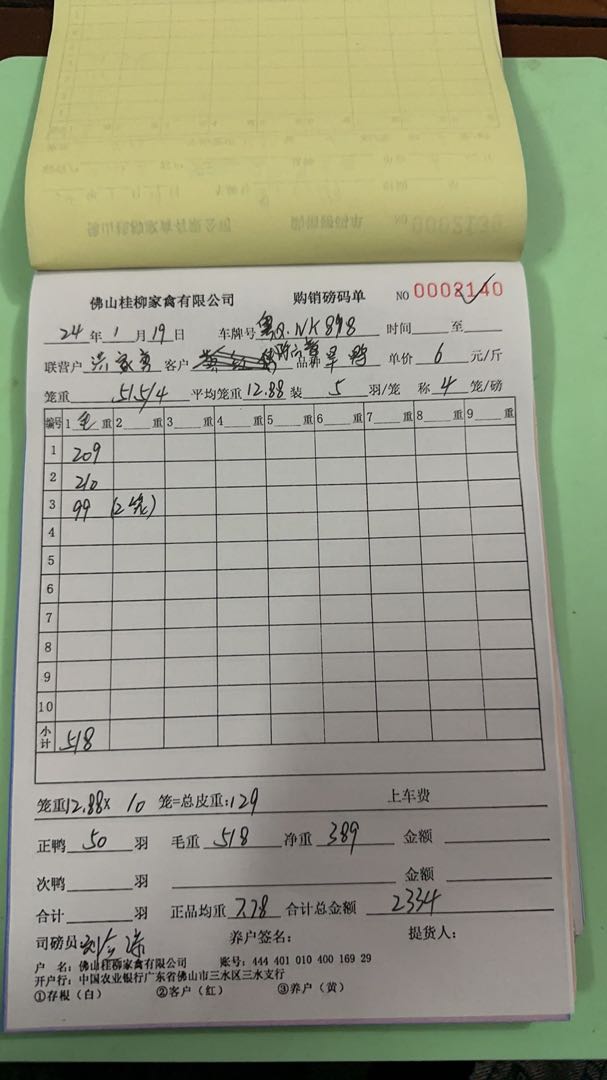 佛山桂柳家禽有限公司 购销磅码单 NO 0002140
24 年 1 月 19 日 车牌号 粤Q.NK898 时间 至
联营户 客户 品种 旱鸭 单价 6 元/斤
笼重 51.5/4 平均笼重 12.88 装 5 羽/笼 称 4 笼/磅
编号 1 毛 重 2 重 3 重 4 重 5 重 6 重 7 重 8 重 9 重
1 209
2 210
3 99 (2笼)
4
5
6
7
8
9
10
小计 518
笼重 12.88 × 10 笼=总皮重: 129 上车费
正鸭 50 羽 毛重 518 净重 389 金额
次鸭 羽 金额
合计 羽 正品均重 7.78 合计总金额 2334
司磅员: 养户签名: 提货人:
户 名: 佛山桂柳家禽有限公司 账号: 444 401 010 400 169 29
开户行: 中国农业银行广东省佛山市三水区三水支行
①存根（白） ②客户（红） ③养户（黄）